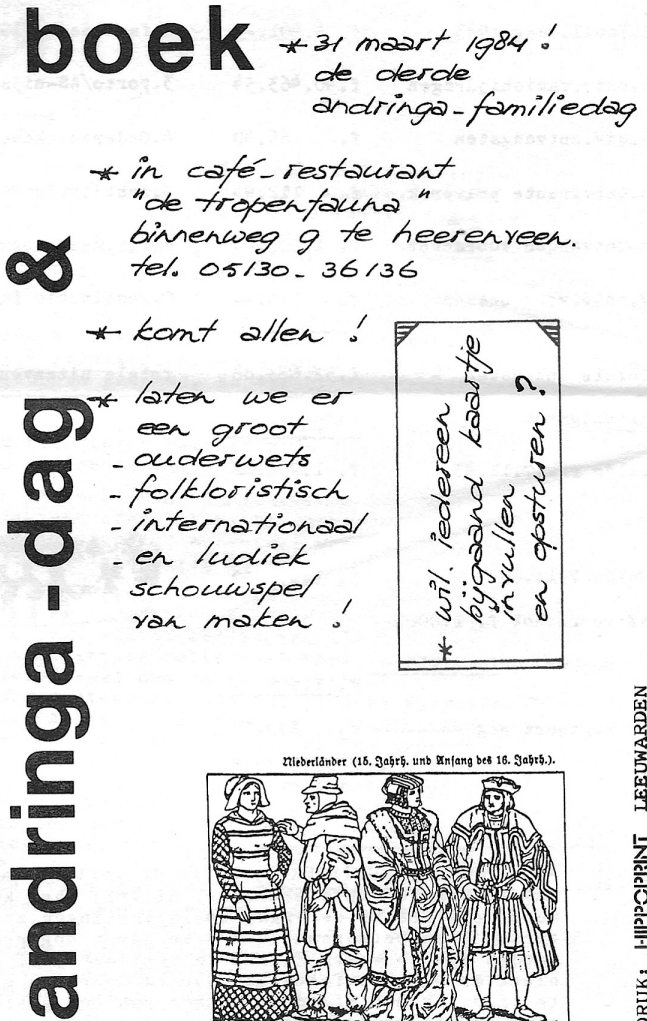 boek
andringa-dag &
* 31 maart 1984!
de derde
andringa-familiedag
* in café-restaurant
"de tropenfauna"
binnenweg 9 te heerenveen.
tel. 05130-36136
* komt allen!
* laten we er
een groot
- ouderwets
- folkloristisch
- internationaal
- en ludiek
schouwspel
van maken!
* wil iedereen
bijgaand kaartje
invullen
en opsturen?
Niederländer (15. Jahrh. und Anfang des 16. Jahrh.).
DRUK: HIPPOPRINT LEEUWARDEN